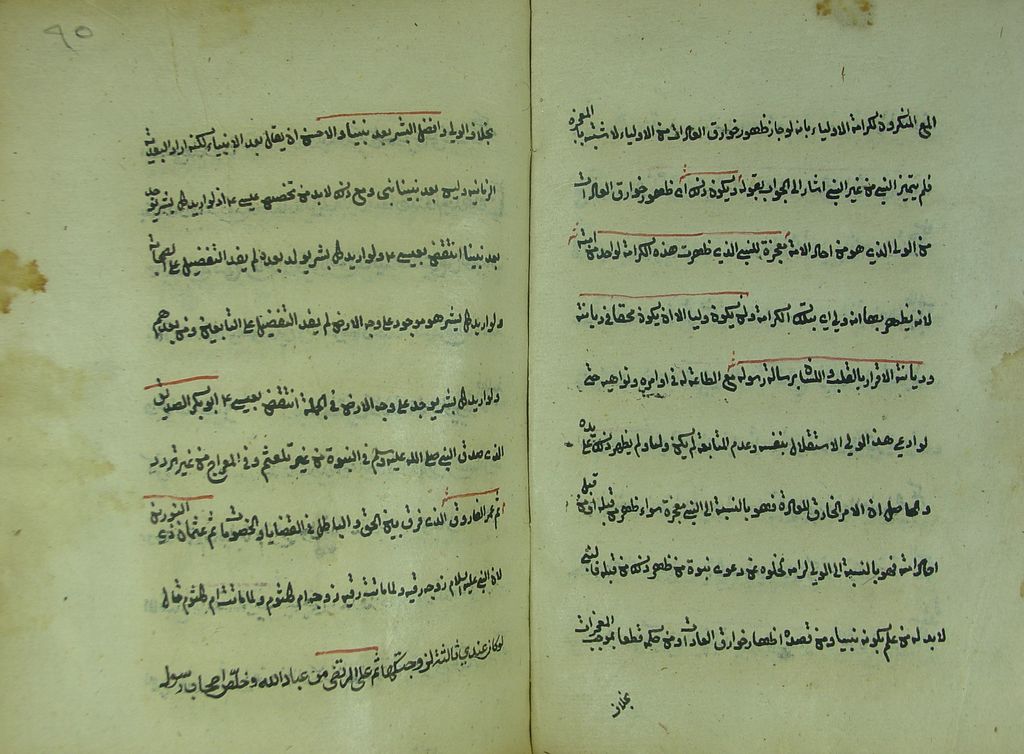 المعتزلة المنكرون لكرامة الاولياء بانه لو جاز ظهور خوارق العادات من الاولياء لاشتبه بالمعجزة
فلم يتميز النبي من غير النبي اشار الى الجواب بقوله ويكون ذلك اي ظهور خوارق العادات
من الولي الذي هو من احاد الامة معجزة للنبي الذي ظهرت هذه الكرامة لواحد من امته
لانه يظهر بها انه ولي اي بتلك الكرامة ولن يكون وليا الا ان يكون محقا في ديانته
وديانته الاقرار بالقلب واللسان برسالة رسوله مع الطاعة له في اوامره ونواهيه حتى
لو ادعى هذا الولي الاستقلال بنفسه وعدم المتابعة لم يكن وليا ولم يظهر ذلك على يده
والحاصل ان الامر الخارق للعادة فهو بالنسبة الى النبي معجزة سواء ظهر من قبله او من قبل
احاد امته فهو بالنسبة الى الولي كرامة لخلوه عن دعوى نبوة من ظهر ذلك من قبله فالنبي
لا بد له من علمه بكونه نبيا ومن قصده اظهار خوارق العادات ومن حكمه قطعا بموجب المعجزات
بخلاف
٩٥
بخلاف الولي وافضل البشر بعد نبينا والاحسن ان يقال بعد الانبياء لكنه اراد البعدية
الزمانية وليس بعد نبينا نبي ومع ذلك لا بد من تخصيص عيسى ع م اذ لو اريد كل بشر يوجد
بعد نبينا انتقض بعيسى ع م ولو اريد كل بشر يولد بعده لم يفد التفضيل على الصحابة
ولو اريد كل بشر هو موجود على وجه الارض لم يفد التفضيل على التابعين ومن بعدهم
ولو اريد كل بشر يوجد على وجه الارض في الجملة انتقض بعيسى ع م ابو بكر الصديق
الذي صدق النبي صلى الله عليه وسلم في النبوة من غير تلعثم وفي المعراج من غير تردد
ثم عمر الفاروق الذي فرق بين الحق والباطل في القضايا والخصومات ثم عثمان ذي النورين
لان النبي عليه السلام زوجه رقية ولما ماتت رقية زوجه ام كلثوم ولما ماتت ام كلثوم قال
لو كان عندي ثالثة لزوجتكها ثم علي المرتضى من عباد الله وخلص اصحاب رسول